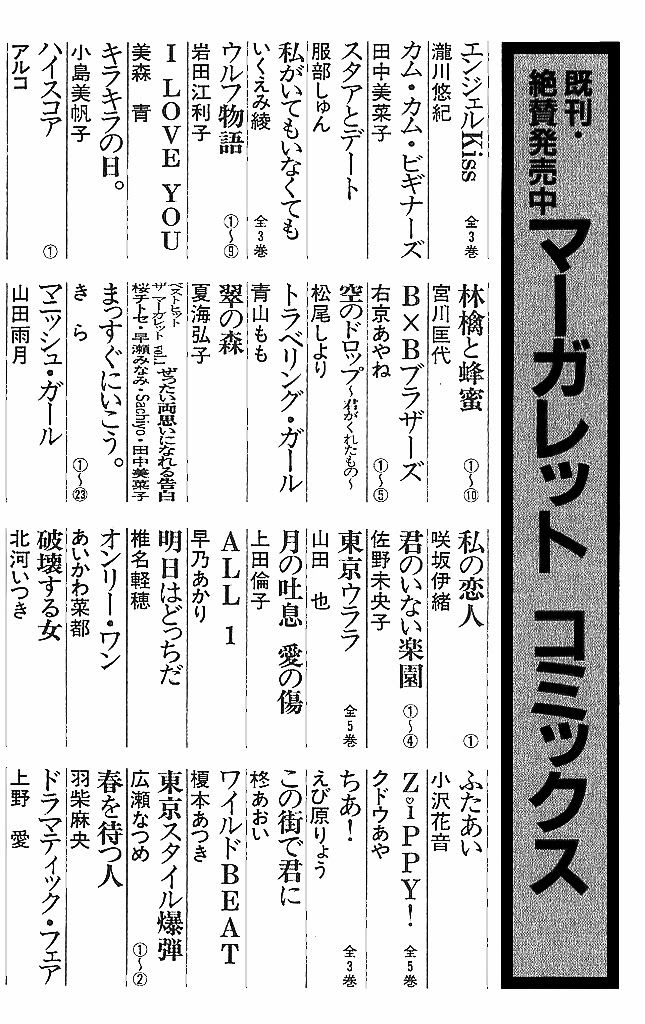 既刊・
絶賛発売中
マーガレット コミックス
エンジェルKiss 全3巻
瀧川悠紀
カム・カム・ビギナーズ
田中美菜子
スタアとデート
服部しゅん
私がいてもいなくても 全3巻
いくえみ綾
ウルフ物語 ①〜⑤
岩田江利子
I LOVE YOU
美森 青
キラキラの日。
小島美帆子
ハイスコア ①
アルコ
林檎と蜂蜜 ①〜⑩
宮川匡代
B×Bブラザーズ ①〜⑤
右京あやね
空のドロップ〜君がくれたもの〜
松尾しより
トラベリング・ガール
青山もも
翠の森
夏海弘子
ベストヒット ザ マーガレット vol.1 ぜったい両思いになれる告白
桜チトセ・早瀬みなみ・Sachiyo・田中美菜子
まっすぐにいこう。 ①〜㉓
きら
マニッシュ・ガール
山田雨月
私の恋人 ①
咲坂伊緒
君のいない楽園 ①〜④
佐野未央子
東京ウララ 全5巻
山田 也
月の吐息 愛の傷
上田倫子
ALL 1
早乃あかり
明日はどっちだ
椎名軽穂
オンリー・ワン
あいかわ菜都
破壊する女
北河いつき
ふたあい
小沢花音
Z♡iPPY! 全5巻
クドウあや
ちあ! 全3巻
えび原りょう
この街で君に
柊あおい
ワイルドBEAT
榎本あつき
東京スタイル爆弾 ①〜②
広瀬なつめ
春を待つ人
羽柴麻央
ドラマティック・フェア
上野 愛